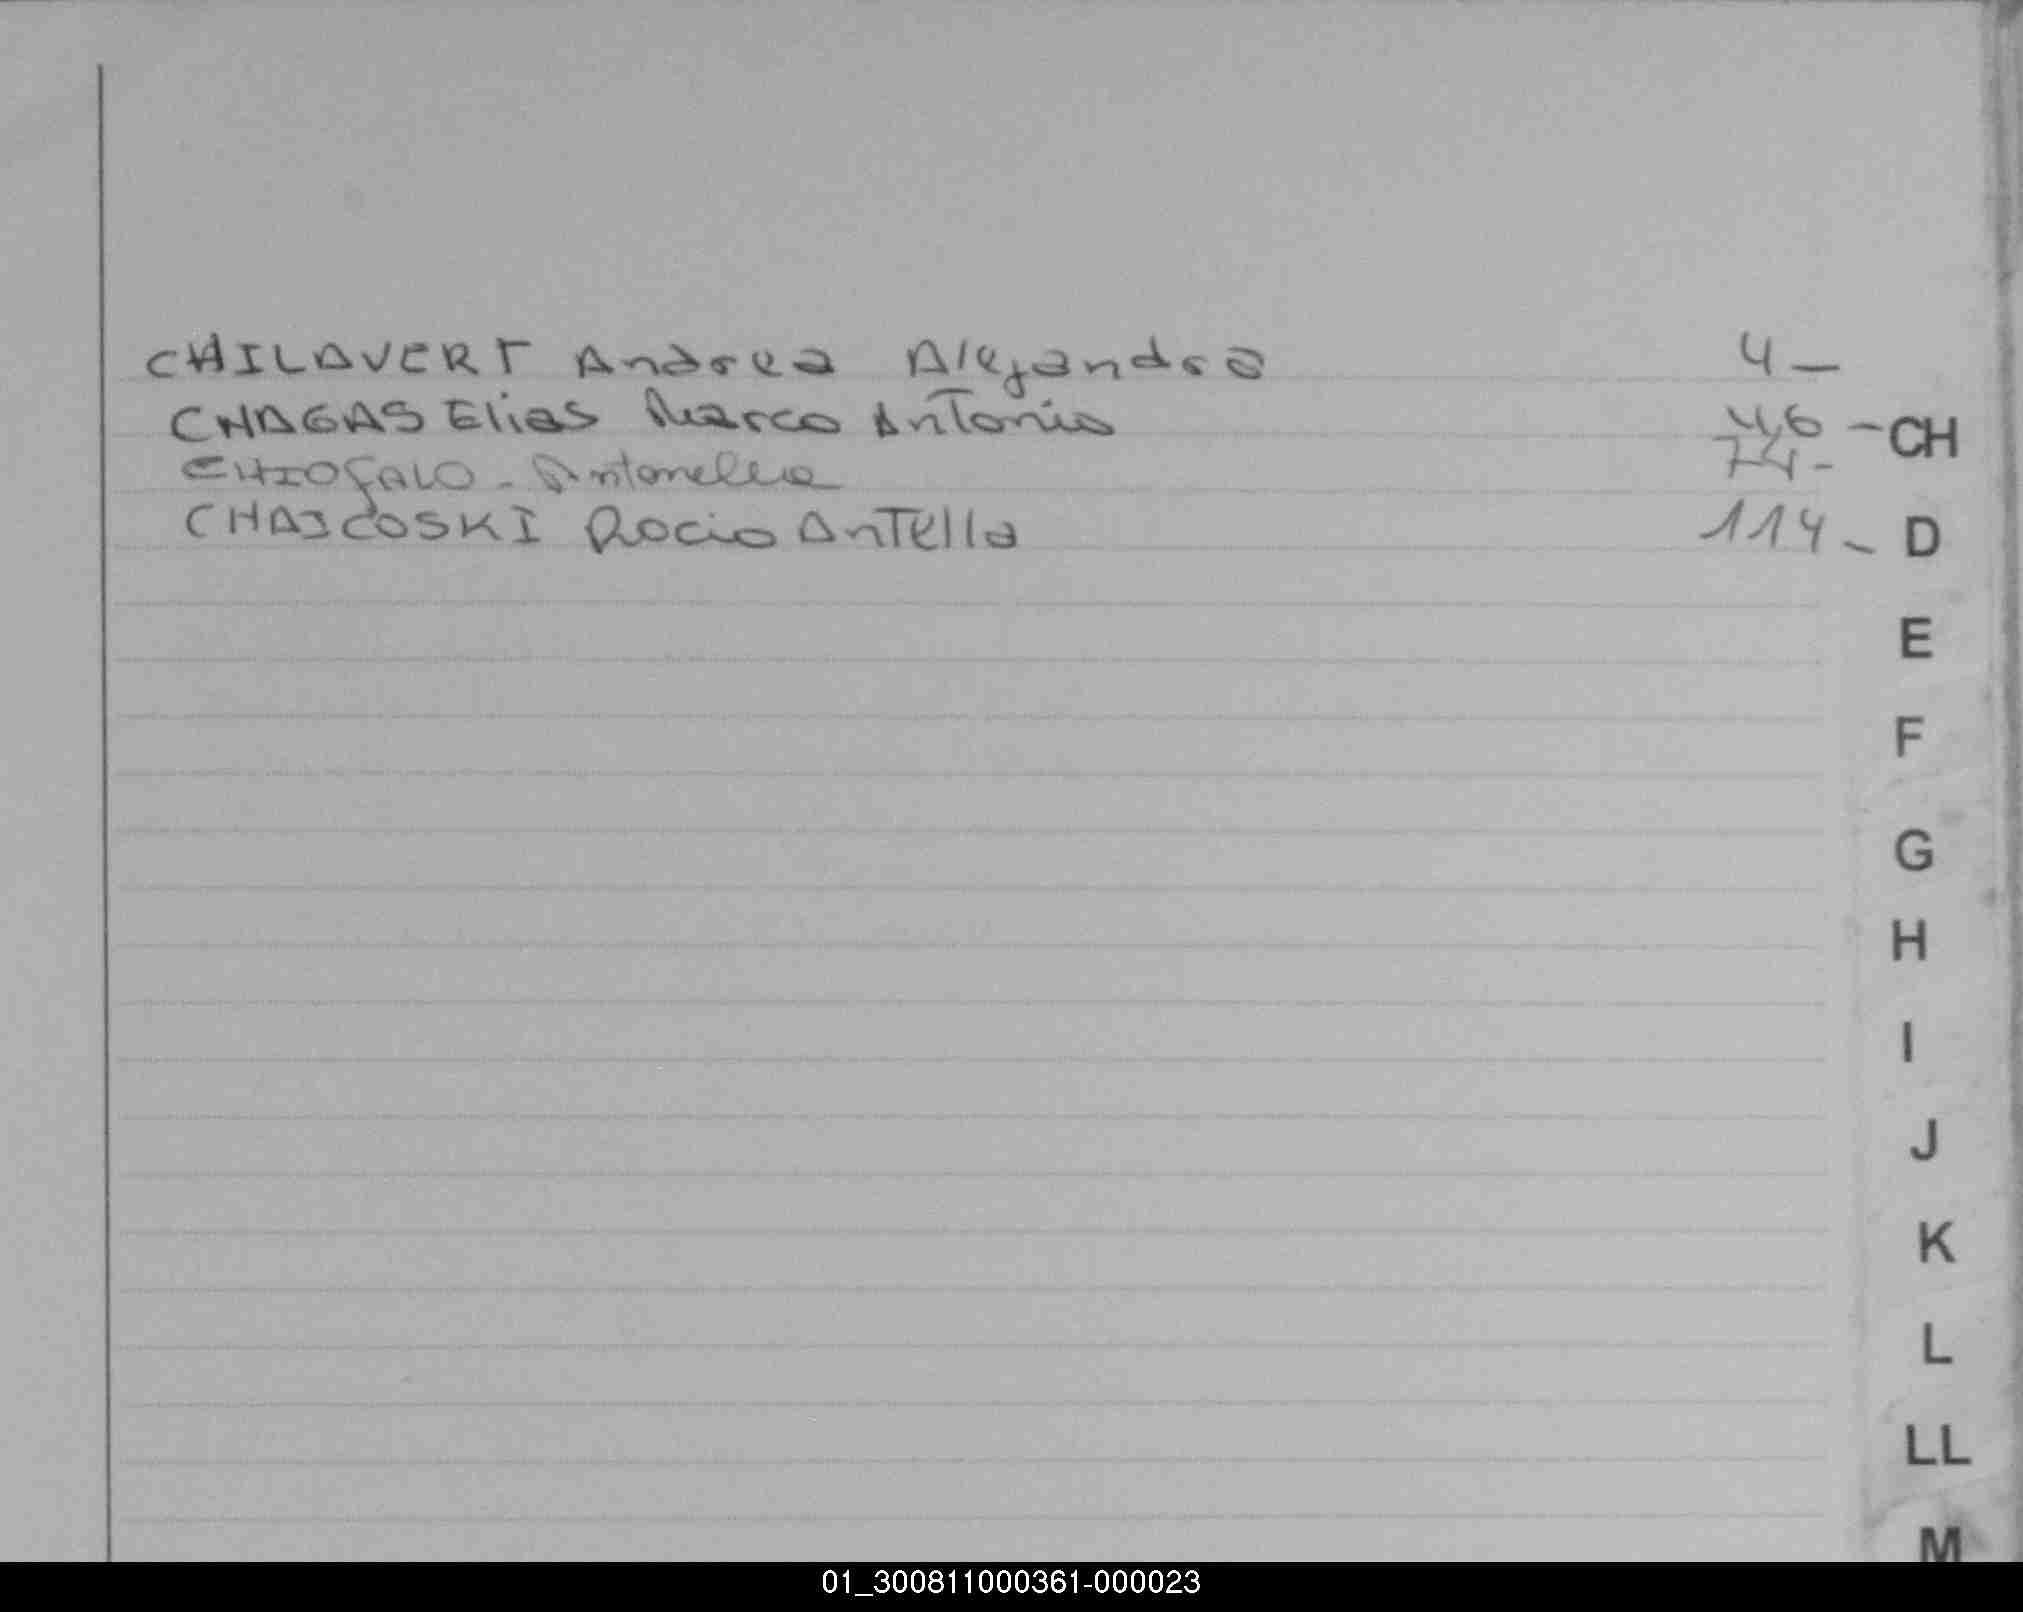 CHILAVERT Andrea Alejandra 4 -
CHAGAS Elias Marco Antonio 46 - CH
CHIOFALO - Antonella 74 -
CHAJCOSKI Rocio Antella 114 - D
E
F
G
H
I
J
K
L
LL
M
01_300811000361-000023